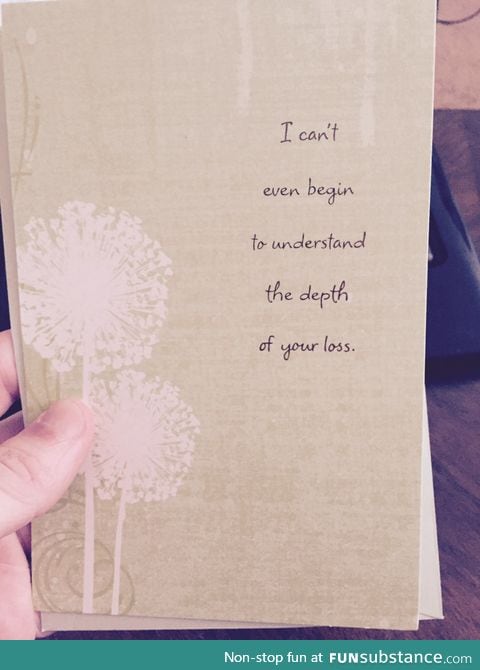 I can't
even begin
to understand
the depth
of your loss.
Non-stop fun at FUNsubstance.com